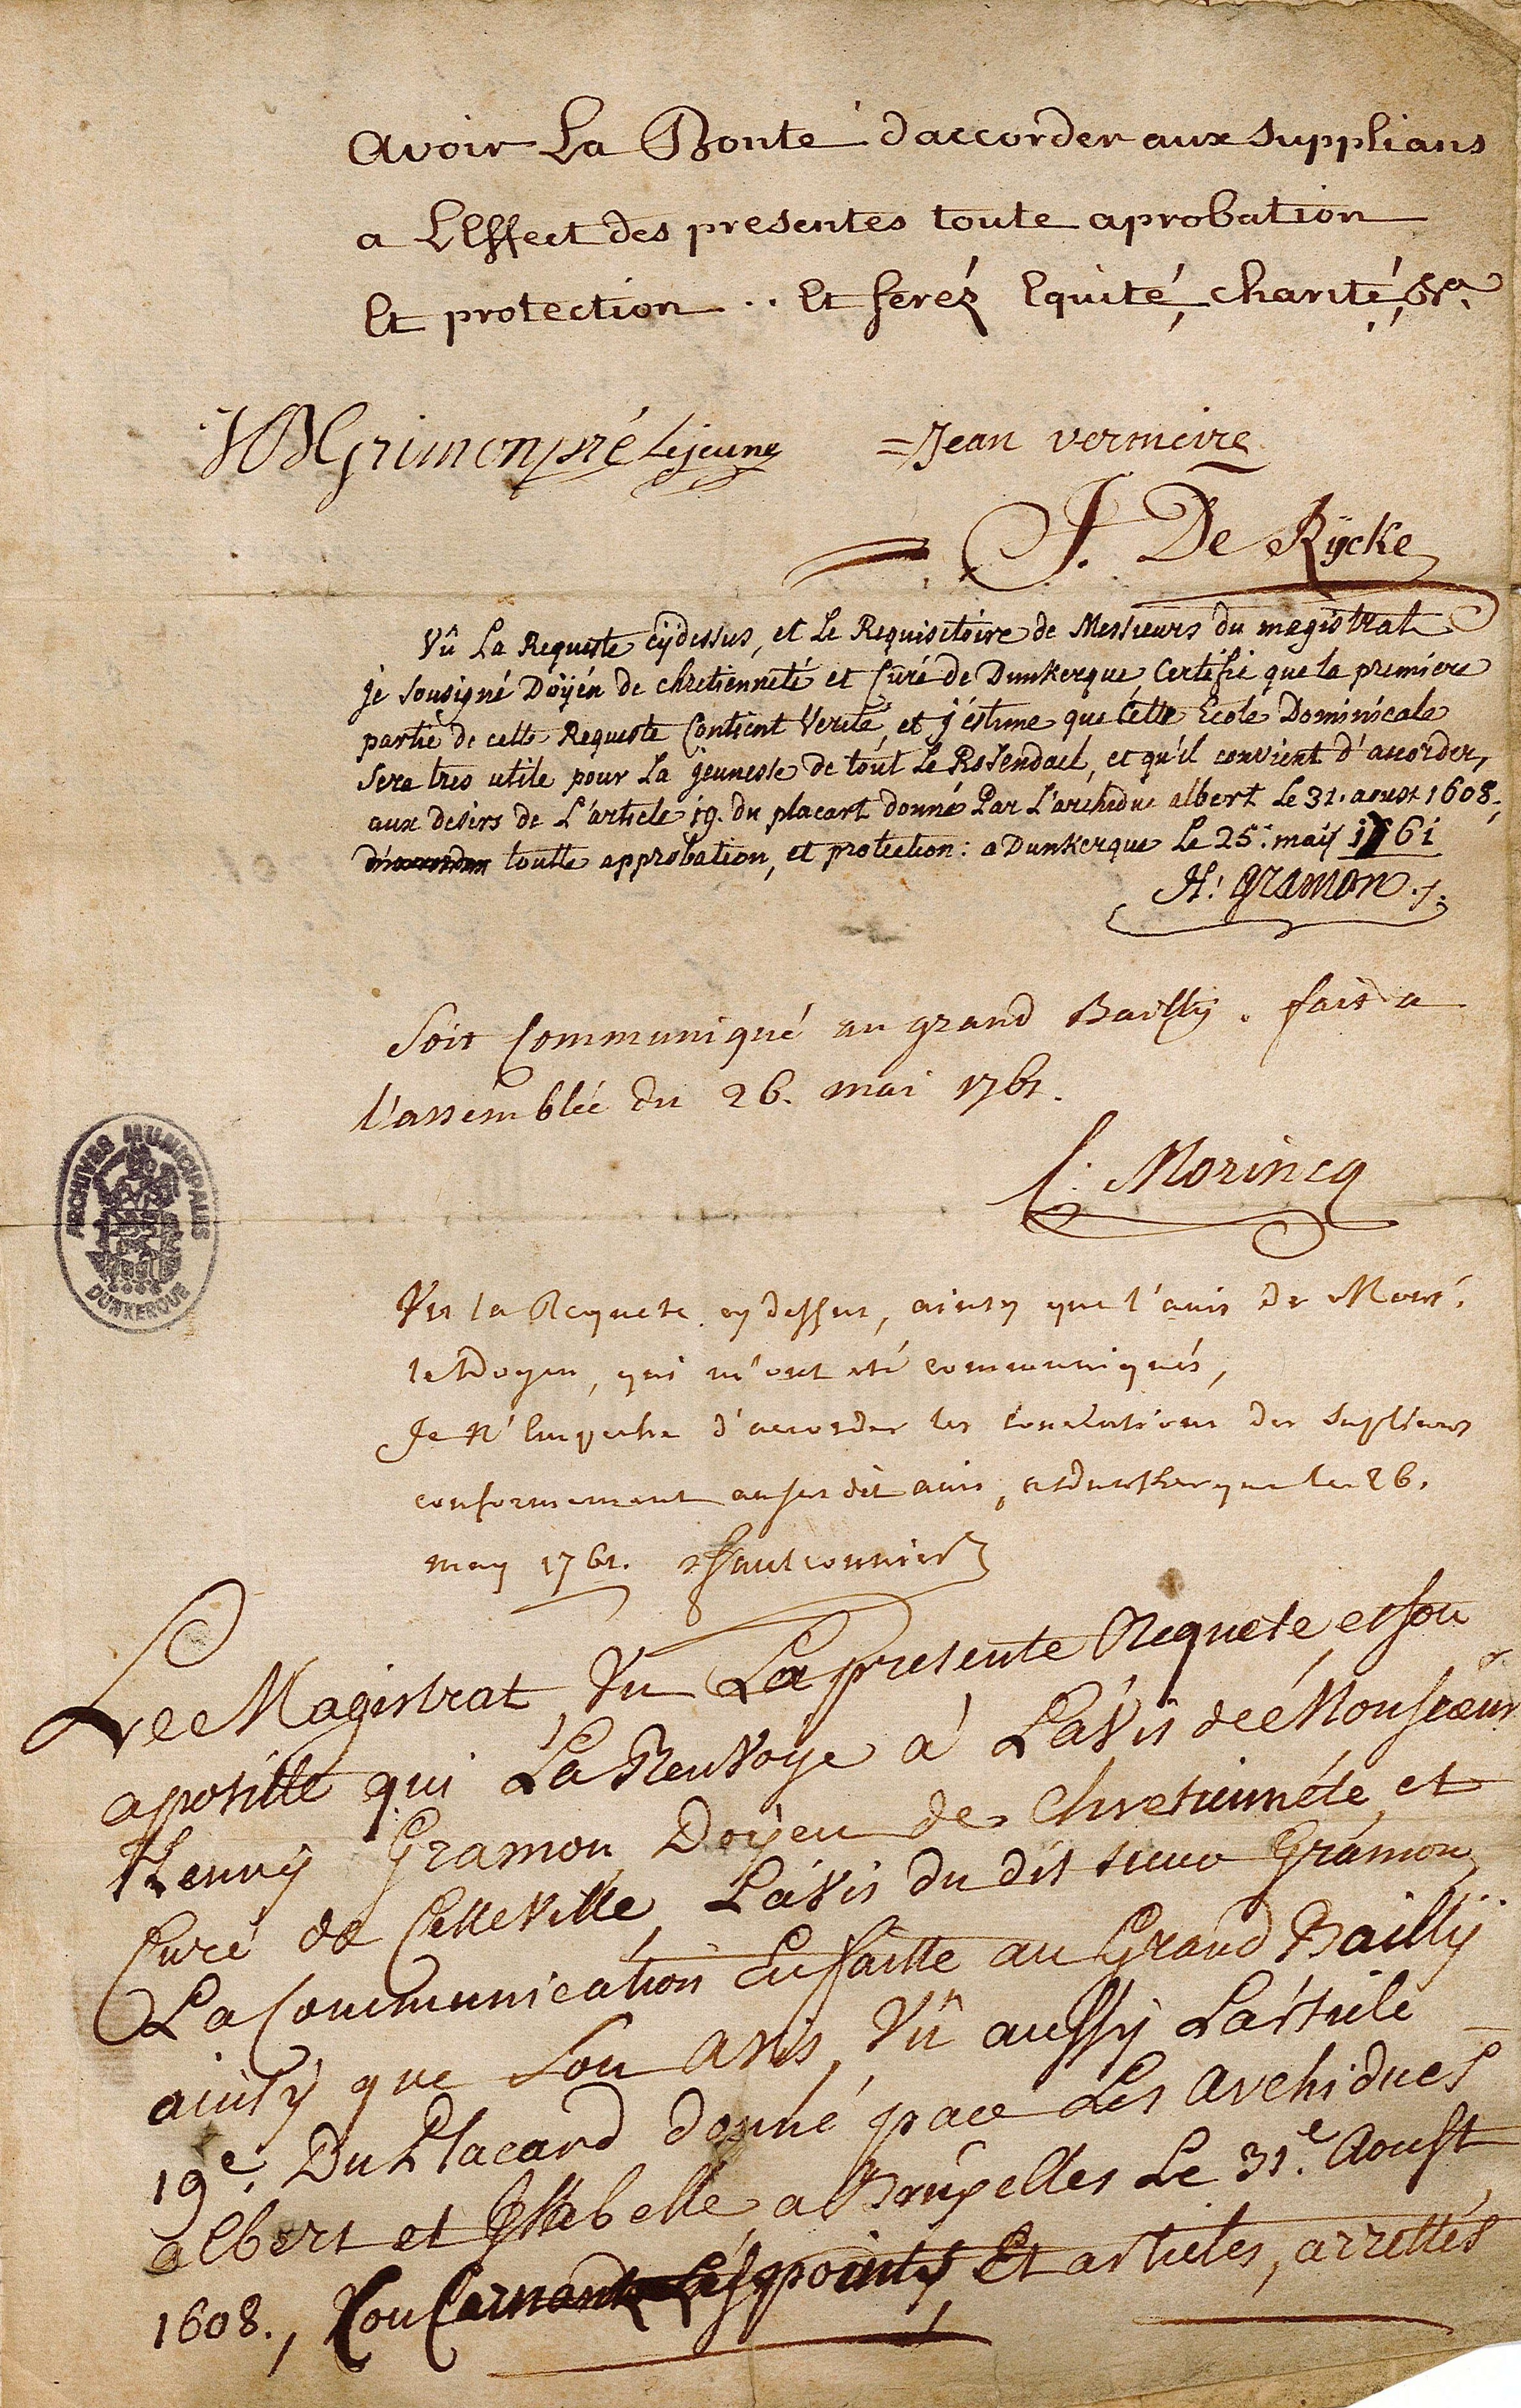 avoir La Bonte d'accorder aux supplians
a L'Effect des presentes toute aprobation
Et protection .. Et ferés Equité, charité, &ra.
Grimonpré Lejeune
=Jean vermeire
J. De Rycke
Vû La Requeste cÿdessus, et Le Requisitoire de Messieurs du magistrat
je sousigné Doÿén de chretienneté et Curé de Dunkerque, Certifie que la premiere
partie de cette Requeste Contient Verité, et j'éstime que cétte Ecole Dominicale
sera tres utile pour La jeunesse de tout Le Rosendael, et qu'il convient d'accorder,
aux desirs de L'article 19. du placart donné Par L'archiduc albert Le 31. aoust 1608,
toutte approbation, et protection: a Dunkerque Le 25. maÿ 1761
H. gramon
Soit Communiqué au grand Bailly. fait a
l'assemblée du 26. mai 1761.
C. Morincq
ARCHIVES MUNICIPALES
DUNKERQUE
Vu la Requete cy dessus, ainsy que l'avis de Monsr.
le Doyen, qui m'ont eté communiqués,
Je N'Empeche d'accorder les conclusions des suplians
conformement au susdit avis, a dunkerque le 26.
may 1761. Faulconnier
Le Magistrat, Vu La presente Requete, et son
apostille qui La Renvoye à L'aVis de Monsieur
Henrÿ Gramon, Doÿen de Chretienneté, et
Curé de Cette Ville, L'aVis du dit sieur Gramon,
La Communication En faitte au Grand Baillÿ
ainsÿ que Son aVis, Vû aussÿ L'article
19e. Du Placard donné par Les archiducs
albert et Isabelle a Bruxelles Le 31e. Aoust
1608., ConCernant Les points Et articles, arrettés